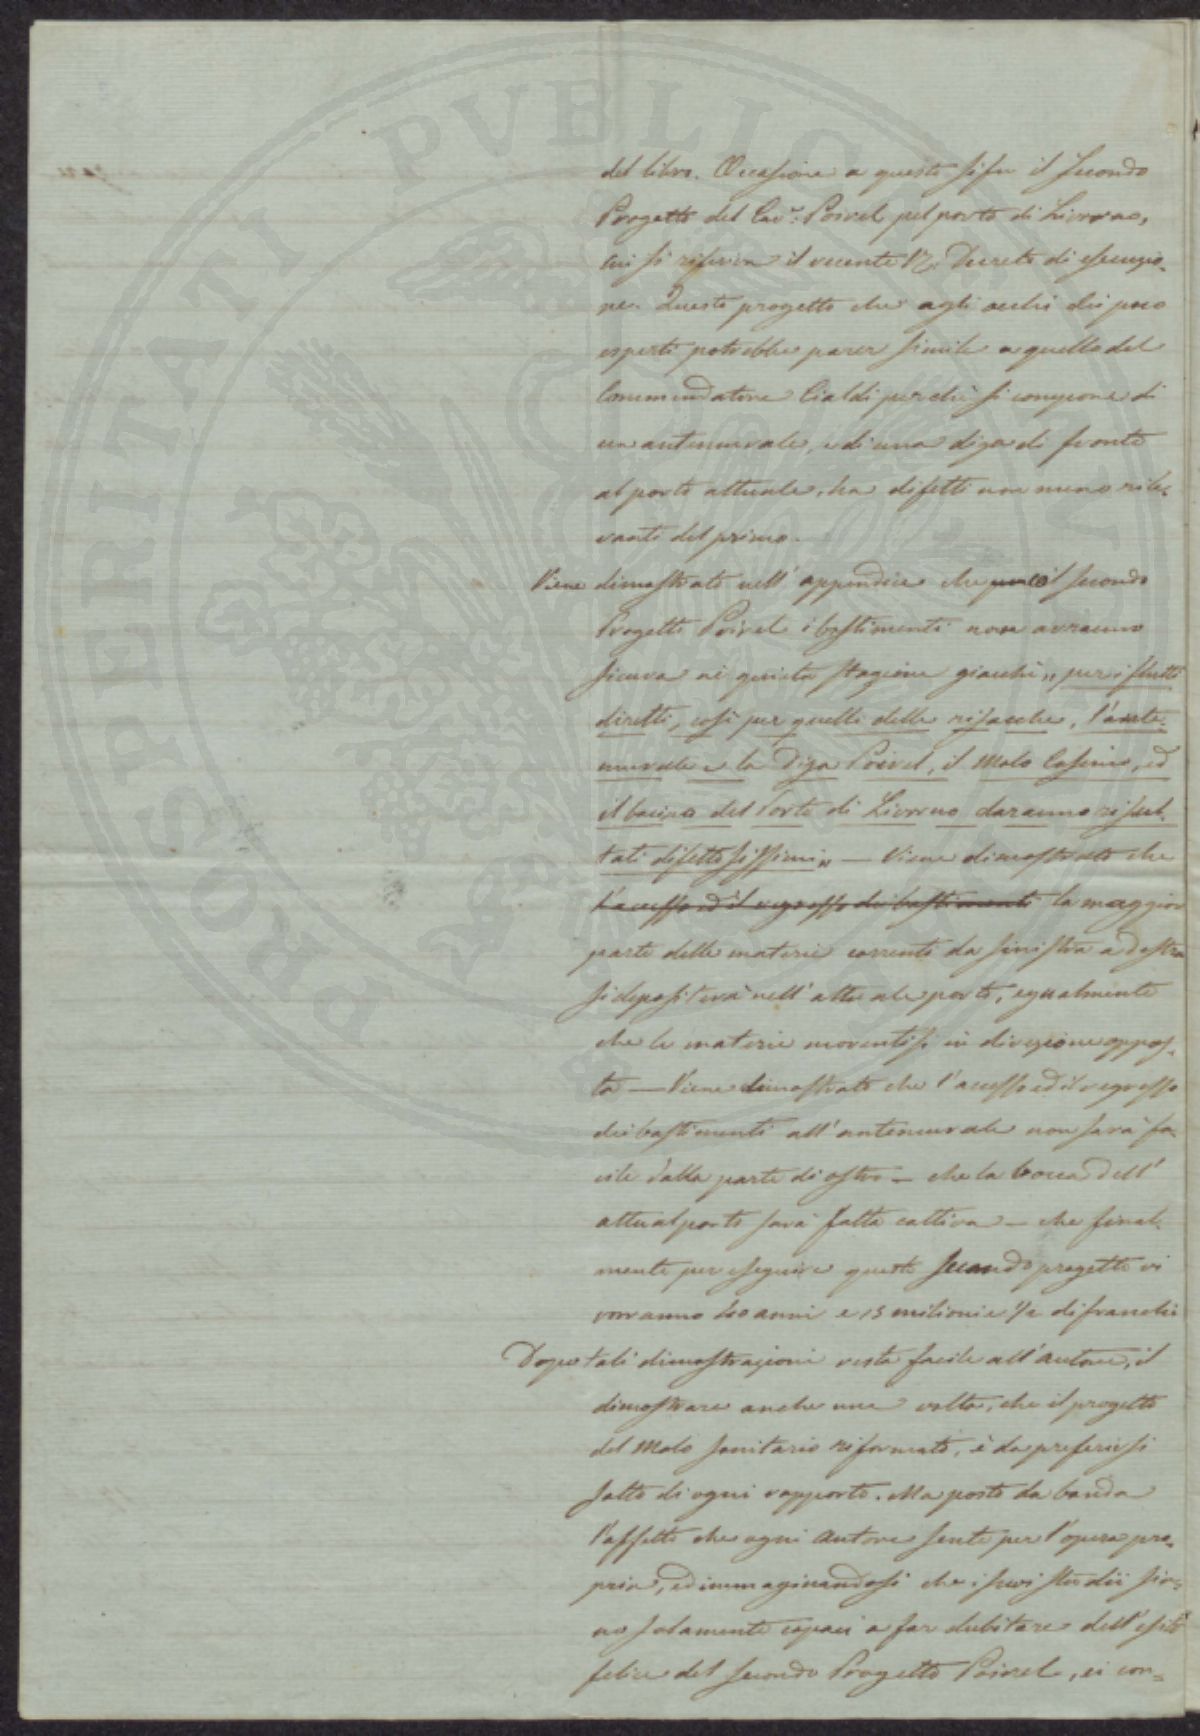 PROSPERITATI PUBLIC
del libro. Occasione a questo si fu il secondo
Progetto del Cav.r Poirel pel porto di Livorno,
cui si riferiva il recente Decreto di esecuzio-
ne. Questo progetto che agli occhi dei poco
esperti potrebbe parer simile a quello del
Commendatore Cialdi perchè si compone di
un antemurale, e di una diga di fronte
al porto attuale, ha difetti non meno rile-
vanti del primo.
Viene dimostrato nell' appendice che il secondo
Progetto Poirel i bastimenti non avranno
sicura nè quieta stagione giacchè „ per i flutti
diretti, così per quelli delle risacche, l'ante-
murale e la Diga Poirel, il Molo Cosimo, ed
il bacino del Porto di Livorno daranno risul-
tati difettosissimi „ — Viene dimostrato che
l'accesso ed il regresso dei bastimenti la maggior
parte delle materie correnti da sinistra a destra
si depositerà nell' attuale porto, egualmente
che le materie moventisi in direzione oppos-
ta — Viene dimostrato che l'accesso ed il regresso
dei bastimenti all' antemurale non sarà fa-
cile dalla parte di ostro — che la bocca dell'
attual porto sarà fatta cattiva — che final-
mente per eseguire questo secondo progetto vi
vorranno 40 anni e 13 milioni e 1/2 di franchi
Dopo tali dimostrazioni resta facile all' autore, il
dimostrare anche una volta, che il progetto
del Molo Sanitario riformato, è da preferirsi
sotto di ogni rapporto. Ma posto da banda
l'affetto che ogni Autore sente per l'opera pro-
pria, ed immaginandosi che i suoi studii sia-
no solamente capaci a far dubitare dell' esito
felice del secondo Progetto Poirel, ei con-